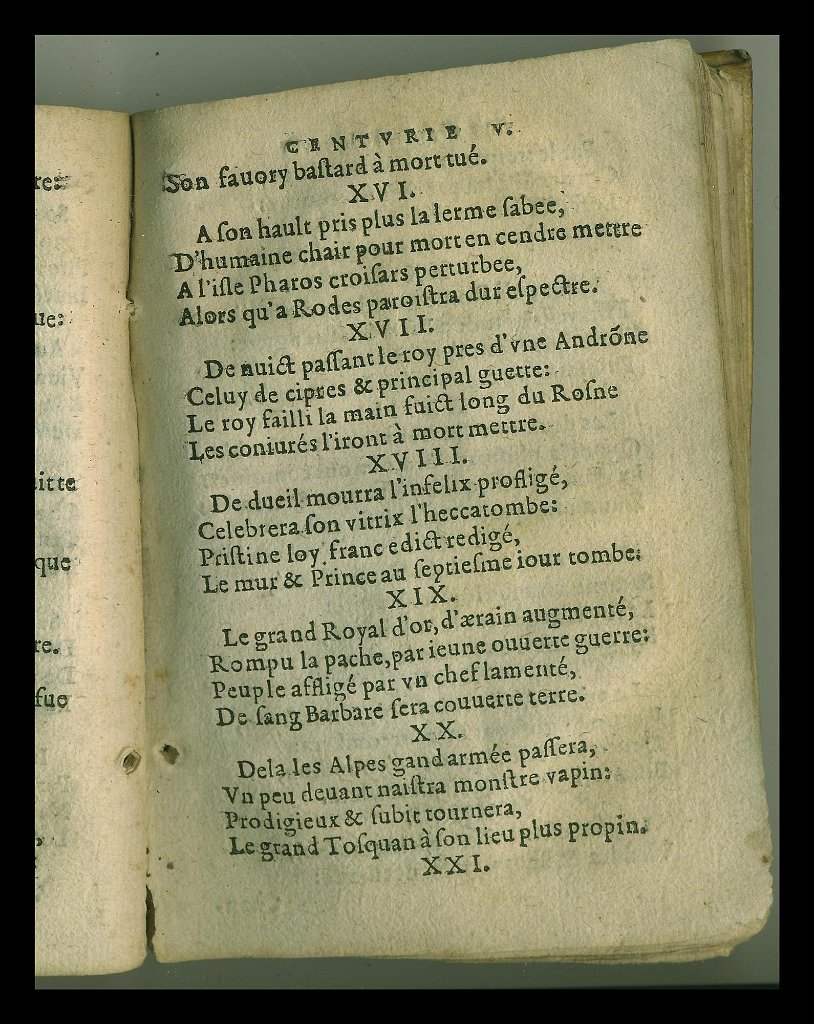 re:
ue:
itte
que
re.
fue
CENTVRIE V.
Son fauory baſtard à mort tué.
XVI.
A ſon hault pris plus la lerme ſabee,
D'humaine chair pour mort en cendre mettre
A l'iſle Pharos croiſars perturbee,
Alors qu'a Rodes paroiſtra dur eſpectre.
XVII.
De nuict paſſant le roy pres d'vne Andrõne
Celuy de cipres & principal guette:
Le roy failli la main fuict long du Roſne
Les coniurés l'iront à mort mettre.
XVIII.
De dueil mourra l'infelix profligé,
Celebrera ſon vitrix l'heccatombe:
Priſtine loy franc edict redigé,
Le mur & Prince au ſeptieſme iour tombe.
XIX.
Le grand Royal d'or, d'ærain augmenté,
Rompu la pache, par ieune ouuerte guerre:
Peuple affligé par vn chef lamenté,
De ſang Barbare ſera couuerte terre.
XX.
Dela les Alpes gand armée paſſera,
Vn peu deuant naiſtra monſtre vapin:
Prodigieux & ſubit tournera,
Le grand Toſquan à ſon lieu plus propin.
XXI.